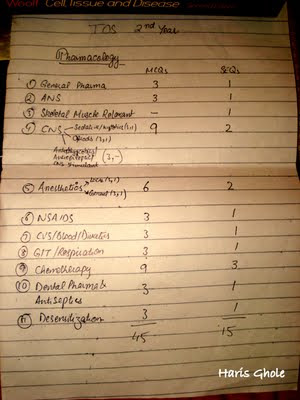 Woolf Cell, Tissue and Disease
TOS 2nd Year
Pharmacology
MCQs SEQs
① General Pharma 3 1
② ANS 3 1
③ Skeletal Muscle Relaxant - 1
④ CNS 9 2
Sedative/Hypnotics (3,1)
Opioids (3,1)
Antipsychotics
Antiepileptics (3,-)
CNS Stimulant
⑤ Anesthetics 6 2
Local (3,1)
General (3,1)
⑥ NSAIDS 3 1
⑦ CVS/Blood/Diuretics 3 1
⑧ GIT/Respiration 3 1
⑨ Chemotherapy 9 3
⑩ Dental Pharma & 3 1
Antiseptics
⑪ Desensitization 3 1
45 15
Haris Ghole